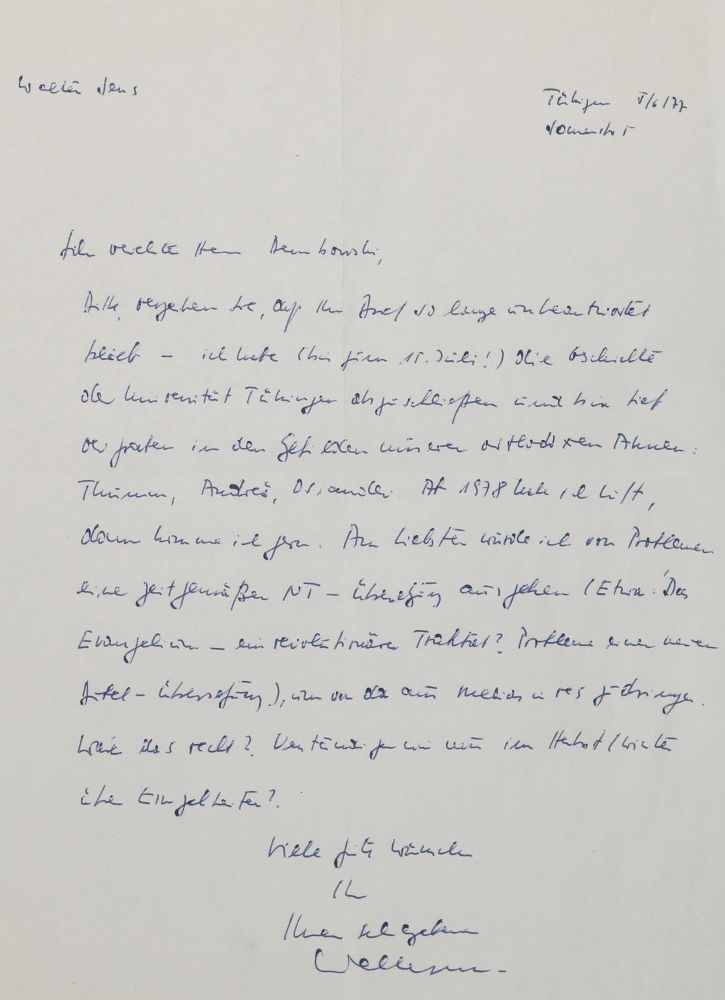 Walter Jens
Tübingen 5/6/77
Sonnenstr. 5
Sehr verehrter Herr Dembowski,
bitte vergeben Sie, daß Ihr Brief so lange unbeantwortet
blieb – ich habe (bis zum 15. Juli!) die Geschichte
der Universität Tübingen abzuschließen und bin tief
vergraben in den Gefilden unserer orthodoxen Ahnen:
Thumm, Andreä, Osiander. Ab 1978 habe ich Luft,
dann komme ich gern. Am liebsten würde ich von Problemen
einer zeitgemäßen NT-Übersetzung ausgehen (Etwa: Das
Evangelium – ein revolutionärer Traktat? Probleme einer neuen
Bibel-Übersetzung), um von da aus medias in res zu dringen.
Wäre das recht? Verständigen wir uns im Herbst/Winter
über Einzelheiten?
Viele gute Wünsche
Ihr
Ihnen sehr ergebener
Walter Jens